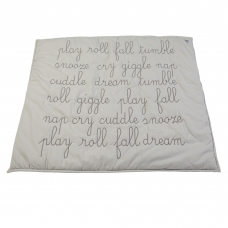 play roll fall tumble
snooze cry giggle nap
cuddle dream tumble
roll giggle play fall
nap cry cuddle snooze
play roll fall dream